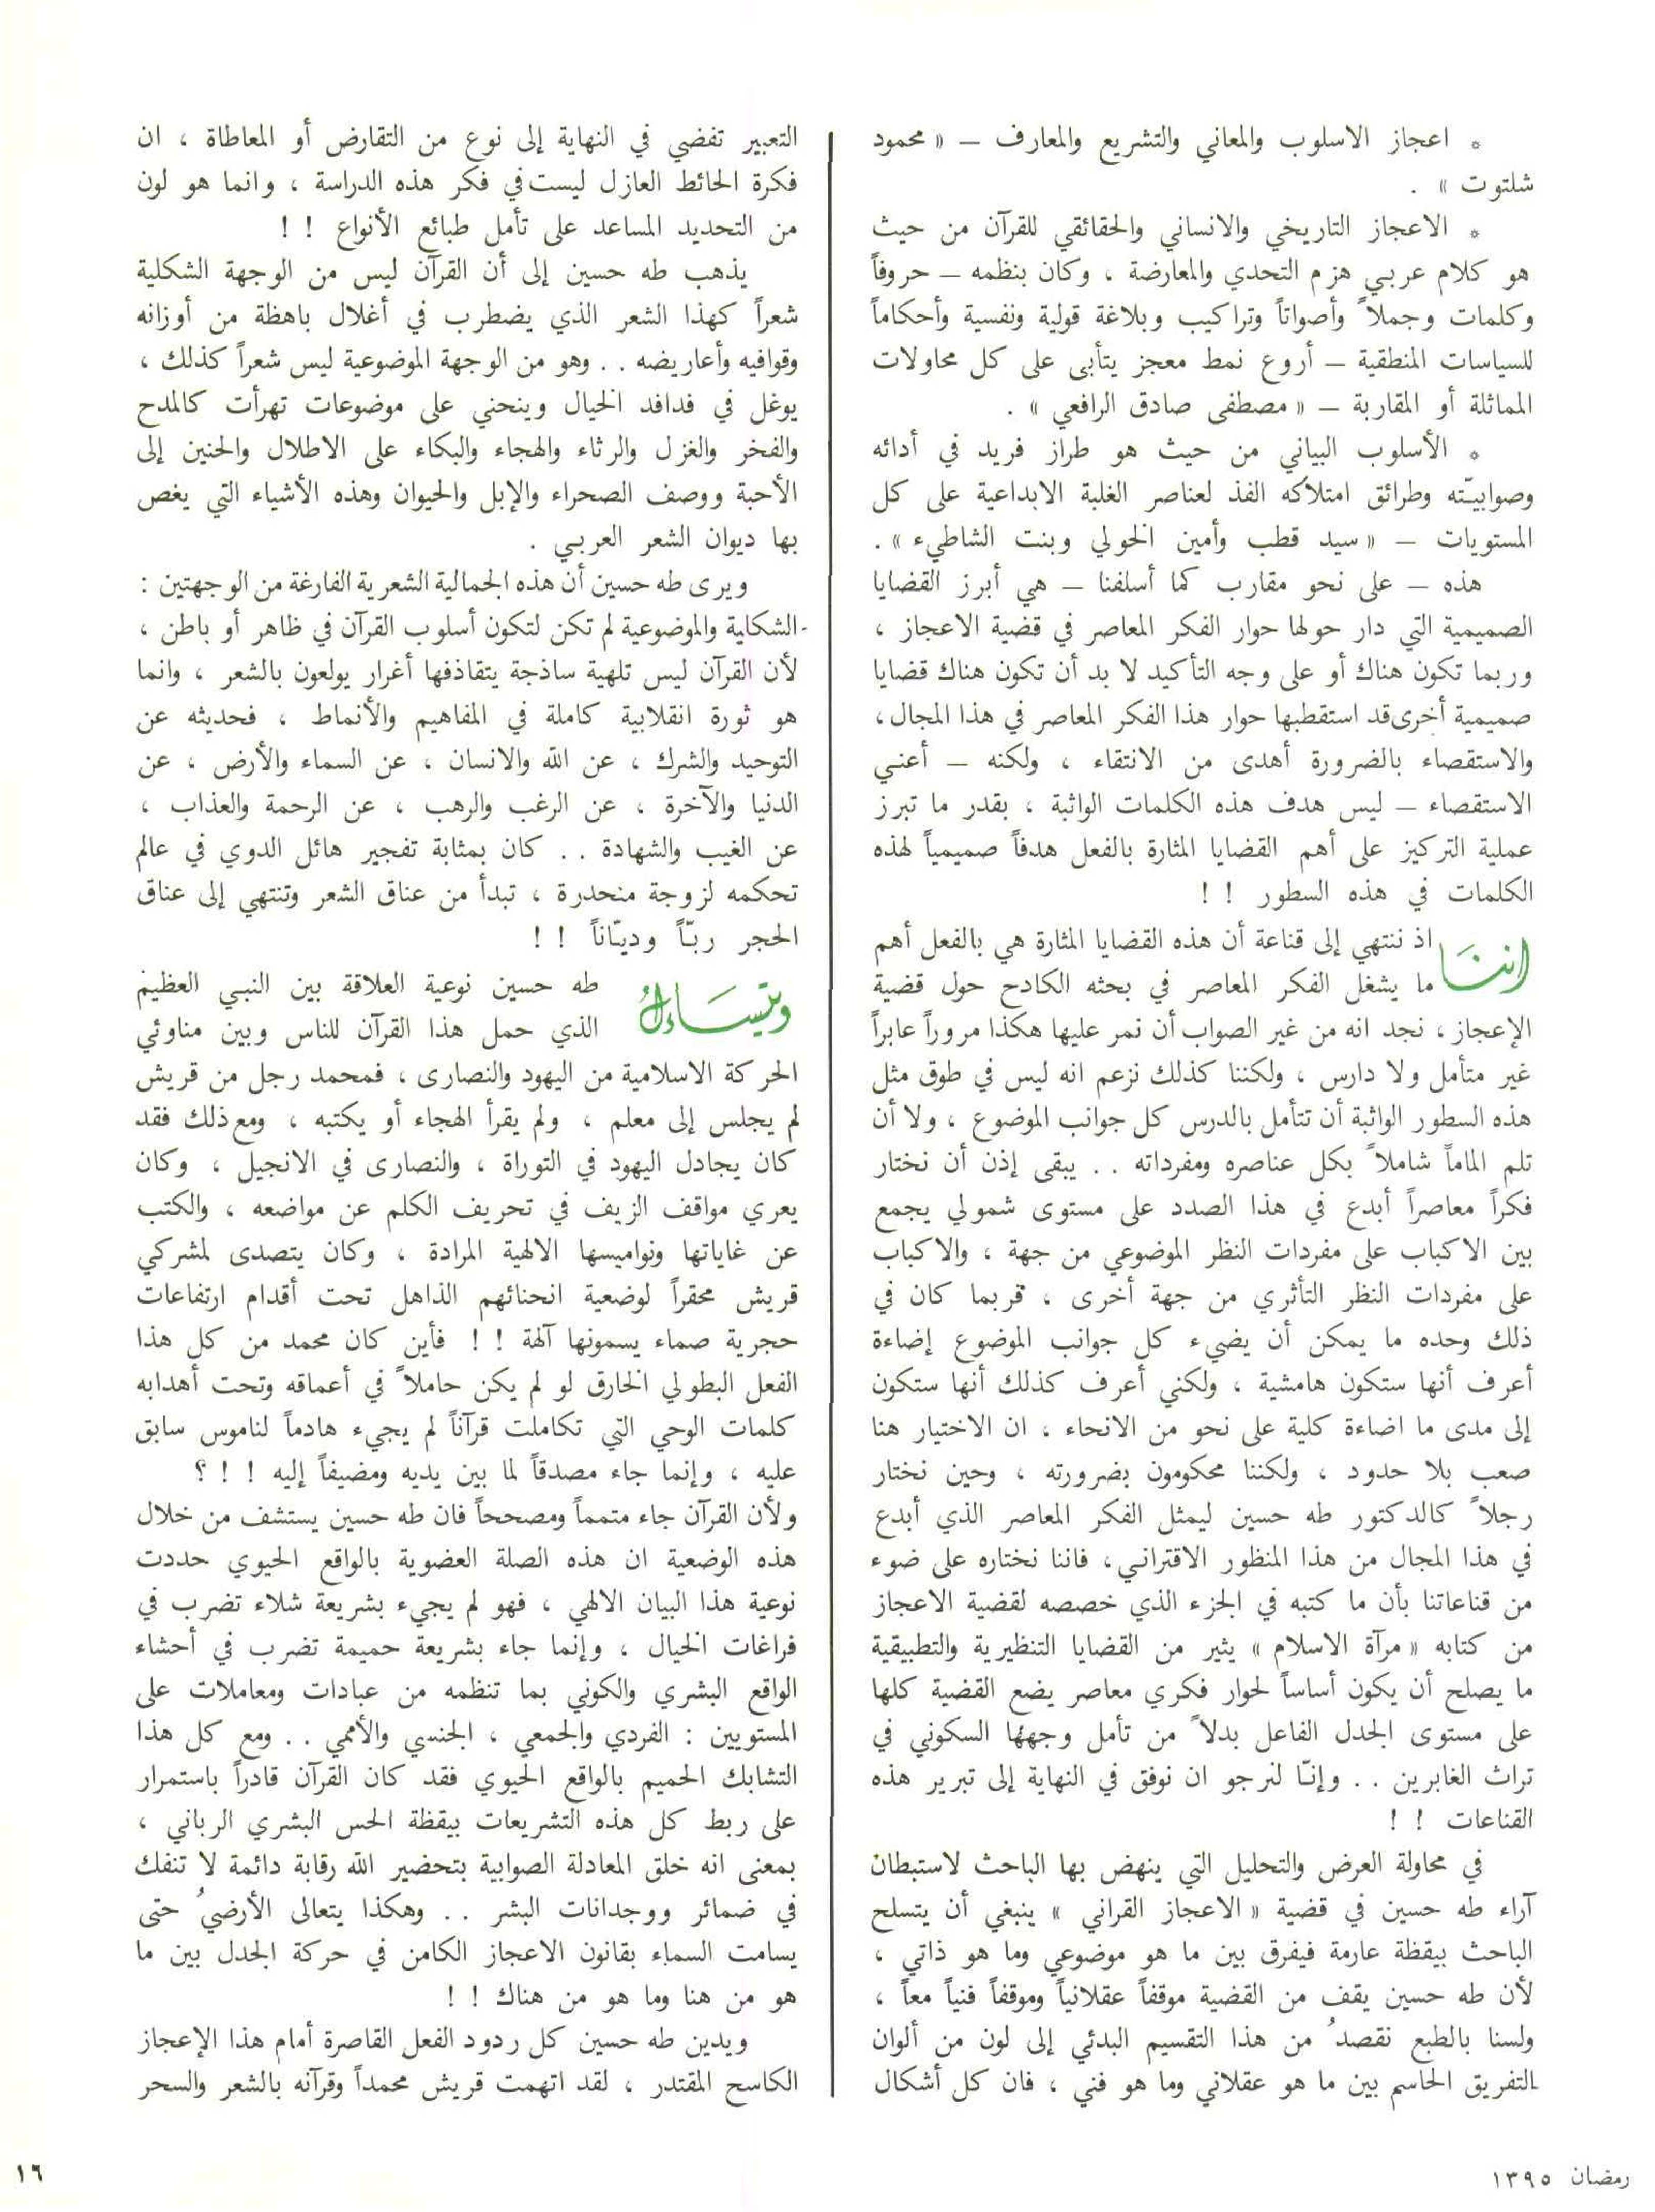 * اعجاز الاسلوب والمعاني والتشريع والمعارف – « محمود
شلتوت » .
* الاعجاز التاريخي والانساني والحقائقي للقرآن من حيث
هو كلام عربي هزم التحدي والمعارضة ، وكان بنظمه – حروفاً
وكلمات وجملاً وأصواتاً وتراكيب وبلاغة قولية ونفسية وأحكاماً
للسياسات المنطقية – أروع نمط معجز يتأبى على كل محاولات
المماثلة أو المقاربة – « مصطفى صادق الرافعي » .
* الأسلوب البياني من حيث هو طراز فريد في أدائه
وصوابيّته وطرائق امتلاكه الفذ لعناصر الغلبة الابداعية على كل
المستويات – « سيد قطب وأمين الخولي وبنت الشاطيء » .
هذه – على نحو مقارب كما أسلفنا – هي أبرز القضايا
الصميمية التي دار حولها حوار الفكر المعاصر في قضية الاعجاز ،
وربما تكون هناك أو على وجه التأكيد لا بد أن تكون هناك قضايا
صميمية أخرى قد استقطبها حوار هذا الفكر المعاصر في هذا المجال ،
والاستقصاء بالضرورة أهدى من الانتقاء ، ولكنه – أعني
الاستقصاء – ليس هدف هذه الكلمات الواثبة ، بقدر ما تبرز
عملية التركيز على أهم القضايا المثارة بالفعل هدفاً صميمياً لهذه
الكلمات في هذه السطور ! !
اننا اذ ننتهي إلى قناعة أن هذه القضايا المثارة هي بالفعل أهم
ما يشغل الفكر المعاصر في بحثه الكادح حول قضية
الإعجاز ، نجد انه من غير الصواب أن نمر عليها هكذا مروراً عابراً
غير متأمل ولا دارس ، ولكننا كذلك نزعم انه ليس في طوق مثل
هذه السطور الواثبة أن تتأمل بالدرس كل جوانب الموضوع ، ولا أن
تلم الماماً شاملاً بكل عناصره ومفرداته . . يبقى إذن أن نختار
فكراً معاصراً أبدع في هذا الصدد على مستوى شمولي يجمع
بين الاكباب على مفردات النظر الموضوعي من جهة ، والاكباب
على مفردات النظر التأثري من جهة أخرى ، فربما كان في
ذلك وحده ما يمكن أن يضيء كل جوانب الموضوع إضاءة
أعرف أنها ستكون هامشية ، ولكني أعرف كذلك أنها ستكون
إلى مدى ما اضاءة كلية على نحو من الانحاء ، ان الاختيار هنا
صعب بلا حدود ، ولكننا محكومون بضرورته ، وحين نختار
رجلاً كالدكتور طه حسين ليمثل الفكر المعاصر الذي أبدع
في هذا المجال من هذا المنظور الاقتراني ، فاننا نختاره على ضوء
من قناعاتنا بأن ما كتبه في الجزء الذي خصصه لقضية الاعجاز
من كتابه « مرآة الاسلام » يثير من القضايا التنظيرية والتطبيقية
ما يصلح أن يكون أساساً لحوار فكري معاصر يضع القضية كلها
على مستوى الجدل الفاعل بدلاً من تأمل وجهها السكوني في
تراث الغابرين . . وإنّا لنرجو ان نوفق في النهاية إلى تبرير هذه
القناعات ! !
في محاولة العرض والتحليل التي ينهض بها الباحث لاستبطان
آراء طه حسين في قضية « الاعجاز القراني » ينبغي أن يتسلح
الباحث بيقظة عارمة فيفرق بين ما هو موضوعي وما هو ذاتي ،
لأن طه حسين يقف من القضية موقفاً عقلانياً وموقفاً فنياً معاً ،
ولسنا بالطبع نقصدُ من هذا التقسيم البدئي إلى لون من ألوان
التفريق الحاسم بين ما هو عقلاني وما هو فني ، فان كل أشكال
التعبير تفضي في النهاية إلى نوع من التقارض أو المعاطاة ، ان
فكرة الحائط العازل ليست في فكر هذه الدراسة ، وانما هو لون
من التحديد المساعد على تأمل طبائع الأنواع ! !
يذهب طه حسين إلى أن القرآن ليس من الوجهة الشكلية
شعراً كهذا الشعر الذي يضطرب في أغلال باهظة من أوزانه
وقوافيه وأعاريضه . . وهو من الوجهة الموضوعية ليس شعراً كذلك ،
يوغل في فدافد الخيال وينحني على موضوعات تهرأت كالمدح
والفخر والغزل والرثاء والهجاء والبكاء على الاطلال والحنين إلى
الأحبة ووصف الصحراء والإبل والحيوان وهذه الأشياء التي يغص
بها ديوان الشعر العربي .
ويرى طه حسين أن هذه الجمالية الشعرية الفارغة من الوجهتين :
الشكلية والموضوعية لم تكن لتكون أسلوب القرآن في ظاهر أو باطن ،
لأن القرآن ليس تلهية ساذجة يتقاذفها أغرار يولعون بالشعر ، وانما
هو ثورة انقلابية كاملة في المفاهيم والأنماط ، فحديثه عن
التوحيد والشرك ، عن الله والانسان ، عن السماء والأرض ، عن
الدنيا والآخرة ، عن الرغب والرهب ، عن الرحمة والعذاب ،
عن الغيب والشهادة . . كان بمثابة تفجير هائل الدوي في عالم
تحكمه لزوجة منحدرة ، تبدأ من عناق الشعر وتنتهي إلى عناق
الحجر ربّاً وديّاناً ! !
ويتساءل طه حسين نوعية العلاقة بين النبي العظيم
الذي حمل هذا القرآن للناس وبين مناوئي
الحركة الاسلامية من اليهود والنصارى ، فمحمد رجل من قريش
لم يجلس إلى معلم ، ولم يقرأ الهجاء أو يكتبه ، ومع ذلك فقد
كان يجادل اليهود في التوراة ، والنصارى في الانجيل ، وكان
يعري مواقف الزيف في تحريف الكلم عن مواضعه ، والكتب
عن غاياتها ونواميسها الالهية المرادة ، وكان يتصدى لمشركي
قريش محقراً لوضعية انحنائهم الذاهل تحت أقدام ارتفاعات
حجرية صماء يسمونها آلهة ! ! فأين كان محمد من كل هذا
الفعل البطولي الخارق لو لم يكن حاملاً في أعماقه وتحت أهدابه
كلمات الوحي التي تكاملت قرآناً لم يجيء هادماً لناموس سابق
عليه ، وإنما جاء مصدقاً لما بين يديه ومضيفاً إليه ! ! ؟
ولأن القرآن جاء متمماً ومصححاً فان طه حسين يستشف من خلال
هذه الوضعية ان هذه الصلة العضوية بالواقع الحيوي حددت
نوعية هذا البيان الالهي ، فهو لم يجيء بشريعة شلاء تضرب في
فراغات الخيال ، وإنما جاء بشريعة حميمة تضرب في أحشاء
الواقع البشري والكوني بما تنظمه من عبادات ومعاملات على
المستويين : الفردي والجمعي ، الجنسي والأممي . . ومع كل هذا
التشابك الحميم بالواقع الحيوي فقد كان القرآن قادراً باستمرار
على ربط كل هذه التشريعات بيقظة الحس البشري الرباني ،
بمعنى انه خلق المعادلة الصوابية بتحضير الله رقابة دائمة لا تنفك
في ضمائر ووجدانات البشر . . وهكذا يتعالى الأرضيُ حتى
يسامت السماء بقانون الاعجاز الكامن في حركة الجدل بين ما
هو من هنا وما هو من هناك ! !
ويدين طه حسين كل ردود الفعل القاصرة أمام هذا الإعجاز
الكاسح المقتدر ، لقد اتهمت قريش محمداً وقرآنه بالشعر والسحر
رمضان ١٣٩٥
١٦